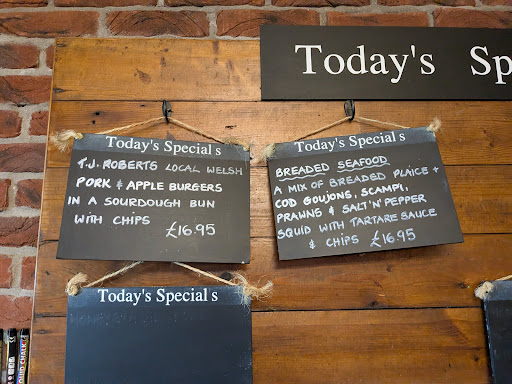 Today's Sp
Today's Specials
T.J. ROBERTS LOCAL WELSH
PORK & APPLE BURGERS
IN A SOURDOUGH BUN
WITH CHIPS
£16.95
Today's Specials
BREADED SEAFOOD
A MIX OF BREADED PLAICE +
COD GOUJONS, SCAMPI,
PRAWNS & SALT 'N' PEPPER
SQUID WITH TARTARE SAUCE
& CHIPS £16.95
Today's Specials